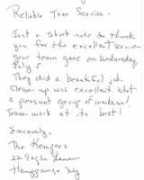 Reliable Tree Service.
Just a short note to thank
you for the excellent service
your team gave on Wednesday
July
They did a beautiful job
Clean up was excellent &
a pleasant group of workers!
Team work at its best!
Sincerely,
The